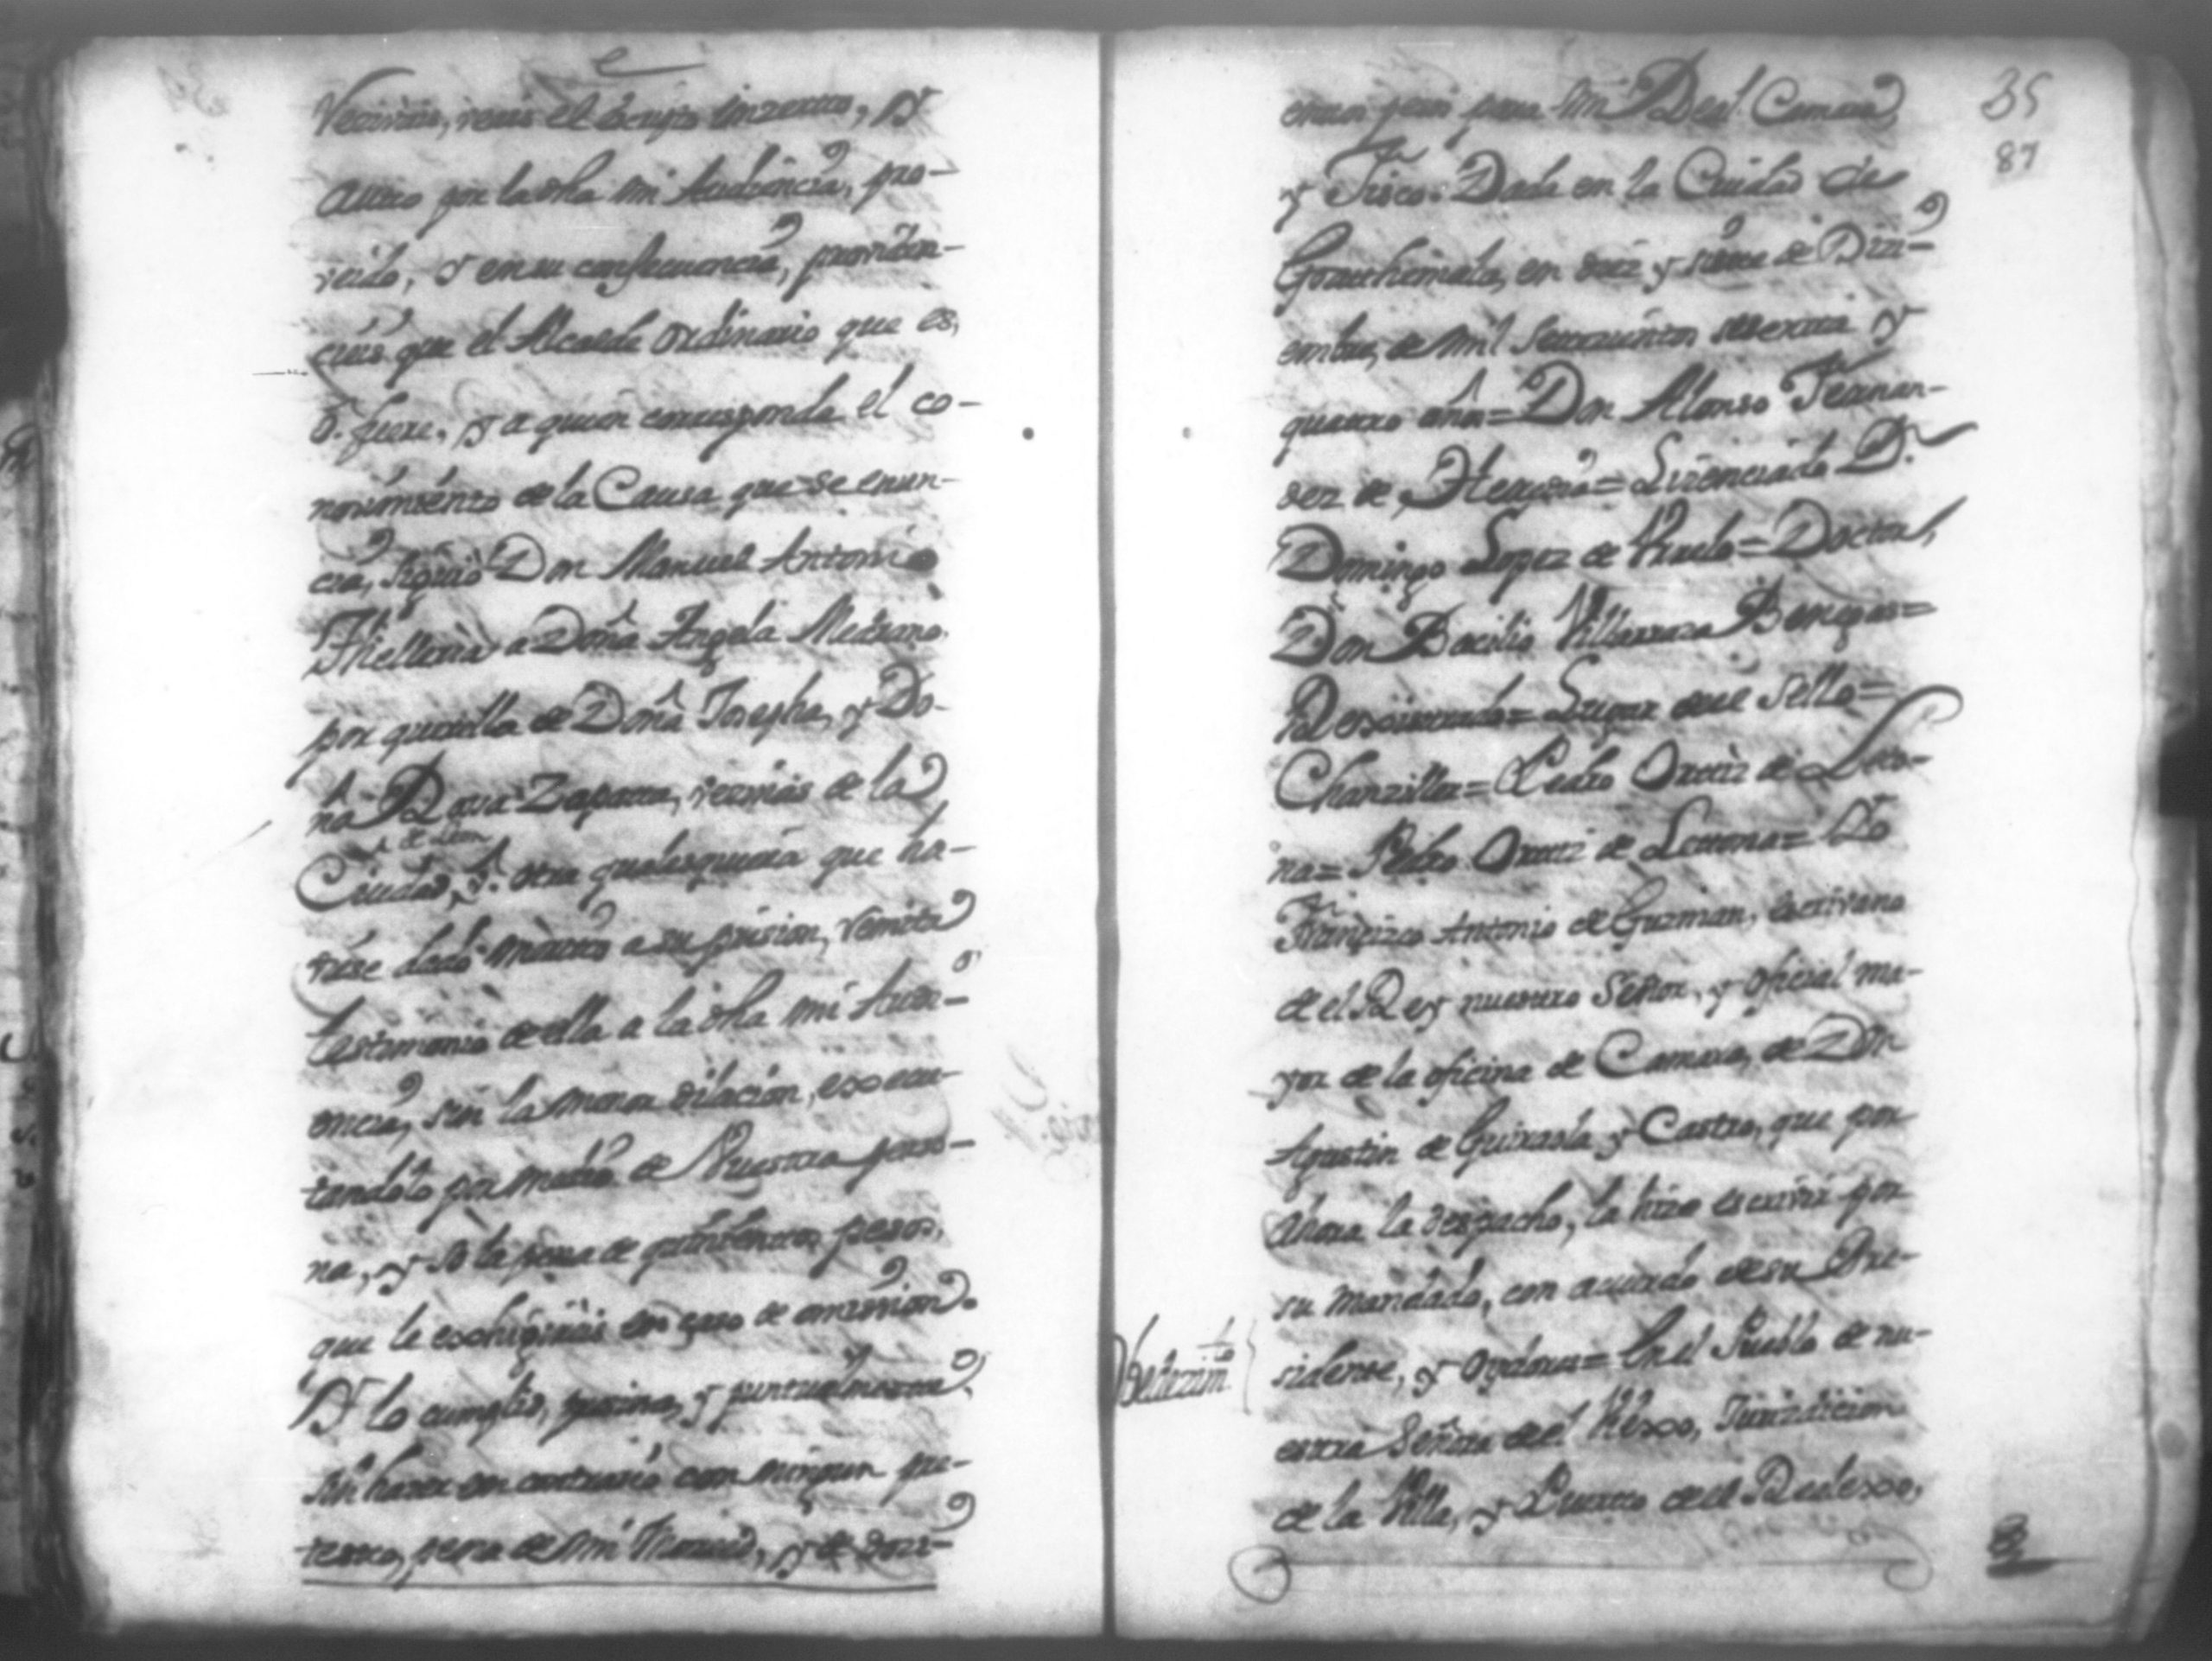 veais el escripto inzerto, y
Autto por la dha mi Audiencia, pro-
veido, y en su consequencia, providen-
ciéis que el Alcalde ordinario que es,
ó fuere, y a quien corresponda el co-
nocimiento de la Causa que se enun-
cia, siguió Don Manuel Antonio
a Doña Angela Medrano
por querella de Doña Josepha, y Do-
ña Rosa Zapata, vezinas de la
de Leon
Ciudad, ó otra qualesquiera que hu-
viese dado merito a su prision, remita
testimonio de ella a la dha mi Audi-
encia, sin la menor dilacion, exsecu-
tandolo por medio de Vuestra perso-
na, y so la pena de quinientos pesos,
que le exshigireis en caso de omission.
Y lo cumplid, precisa, y puntualmente,
sin hazer en contrario con ningun pre-
texto, pena de mi Merced, y de dozi-
35
87
entos pesos para mi Real Camara,
y Fisco. Dada en la Ciudad de
Goauthemala, en diez y siete de Dizi-
embre, de mil setecientos sesenta y
quatro años = Don Alonso Fernan-
dez de Heredia = Lizenciado Dn
Domingo Lopez de Urruelo = Doctor,
Don Bacilio Villarraza Benegas =
Rexistrado = Lugar del Sello =
Chanziller = Pedro Ortiz de Letto-
na = Pedro Ortiz de Lettona = Yo
Francizco Antonio de Guzman, escrivano
de el Rey nuestro Señor, y oficial ma-
yor de la oficina de Camara, de Don
Agustin de Guiraola y Castro, que por
ahora la despacho, la hize escrivir por
su mandado, con acuerdo de su Pre-
sidente, y oydores = En el Pueblo de nu-
Obedezimto
estra Señora de el Viexo, Jurisdicion
de la Villa, y Puerto de el Realexo,